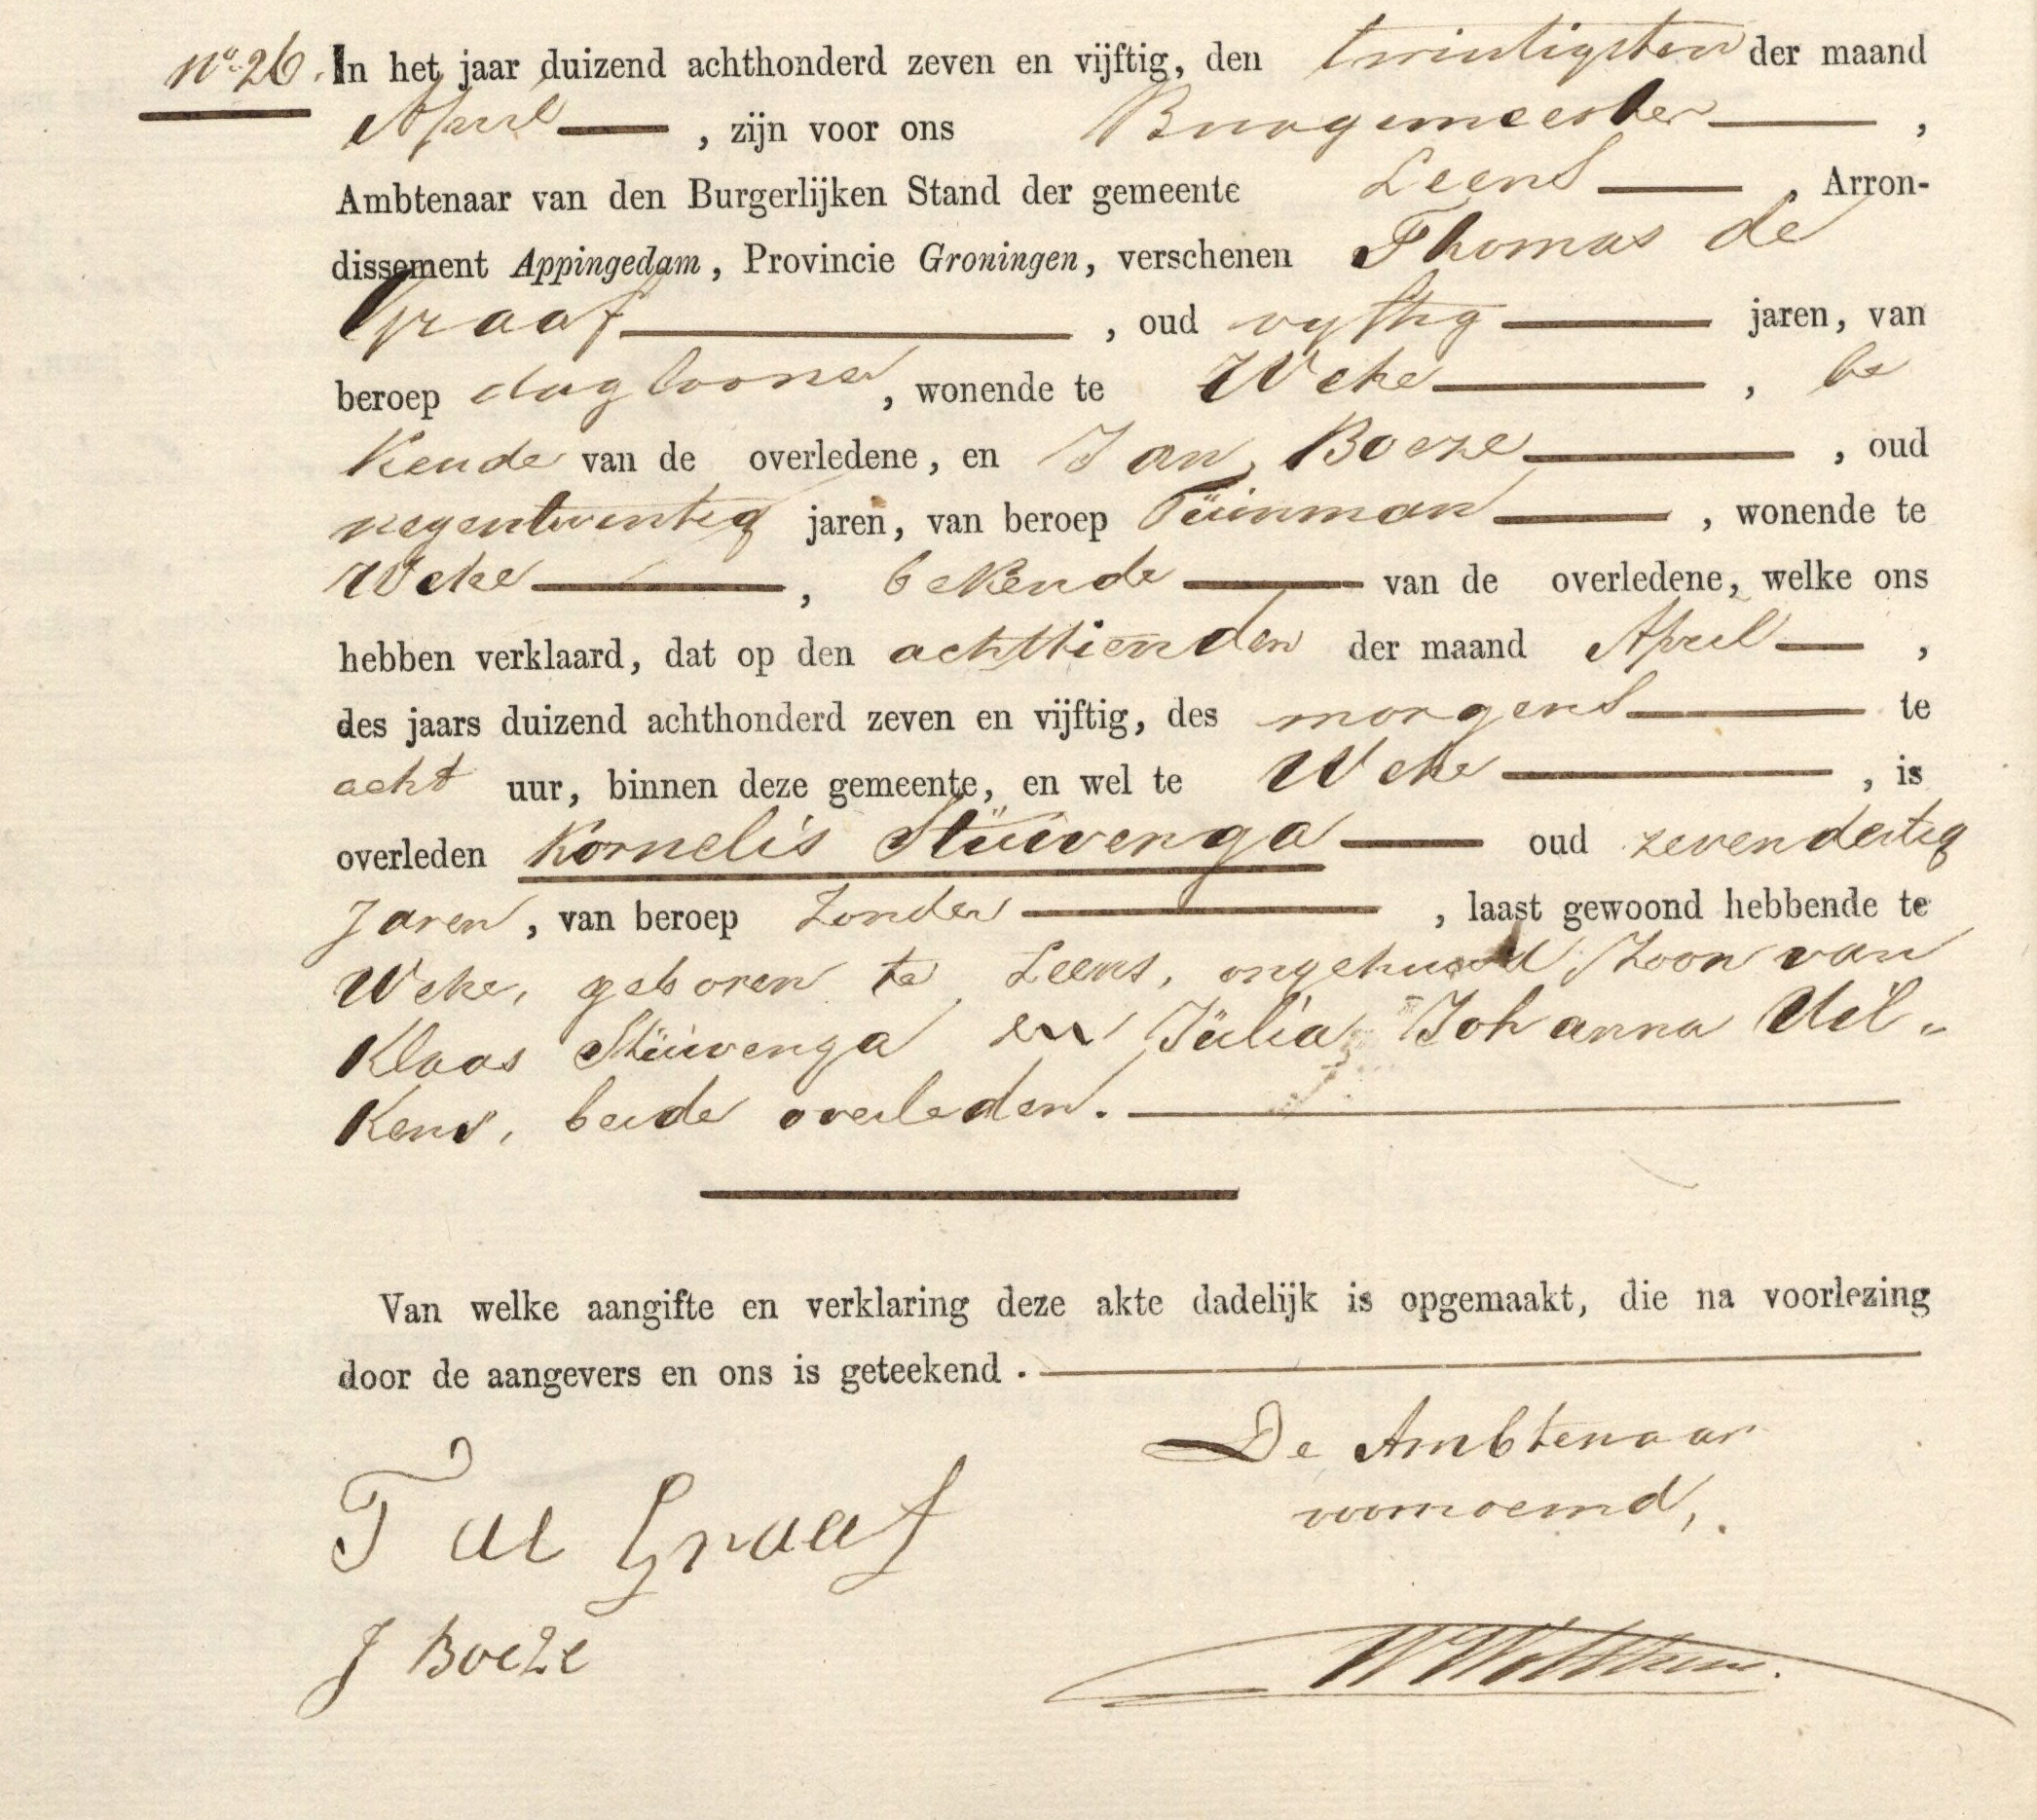 No. 26. In het jaar duizend achthonderd zeven en vijftig, den twintigsten der maand
April, zijn voor ons Burgemeester,
Ambtenaar van den Burgerlijken Stand der gemeente Leens, Arron-
dissement Appingedam, Provincie Groningen, verschenen Thomas de
Graaf, oud vyftig jaren, van
beroep daglooner, wonende te Wehe, be
kende van de overledene, en Jan Boeze, oud
negentwentig jaren, van beroep Tüinman, wonende te
Wehe, bekende van de overledene, welke ons
hebben verklaard, dat op den achttienden der maand April,
des jaars duizend achthonderd zeven en vijftig, des morgens te
acht uur, binnen deze gemeente, en wel te Wehe, is
overleden Kornelis Stüivenga oud zevendertig
Jaren, van beroep Zonder, laast gewoond hebbende te
Wehe, geboren te Leens, ongehuwd, Zoon van
Klaas Stüivenga en Jülia Johanna Uil-
kens, beide overleden.
Van welke aangifte en verklaring deze akte dadelijk is opgemaakt, die na voorlezing
door de aangevers en ons is geteekend.
De Ambtenaar
voornoemd,
T de Graaf
J Boeze